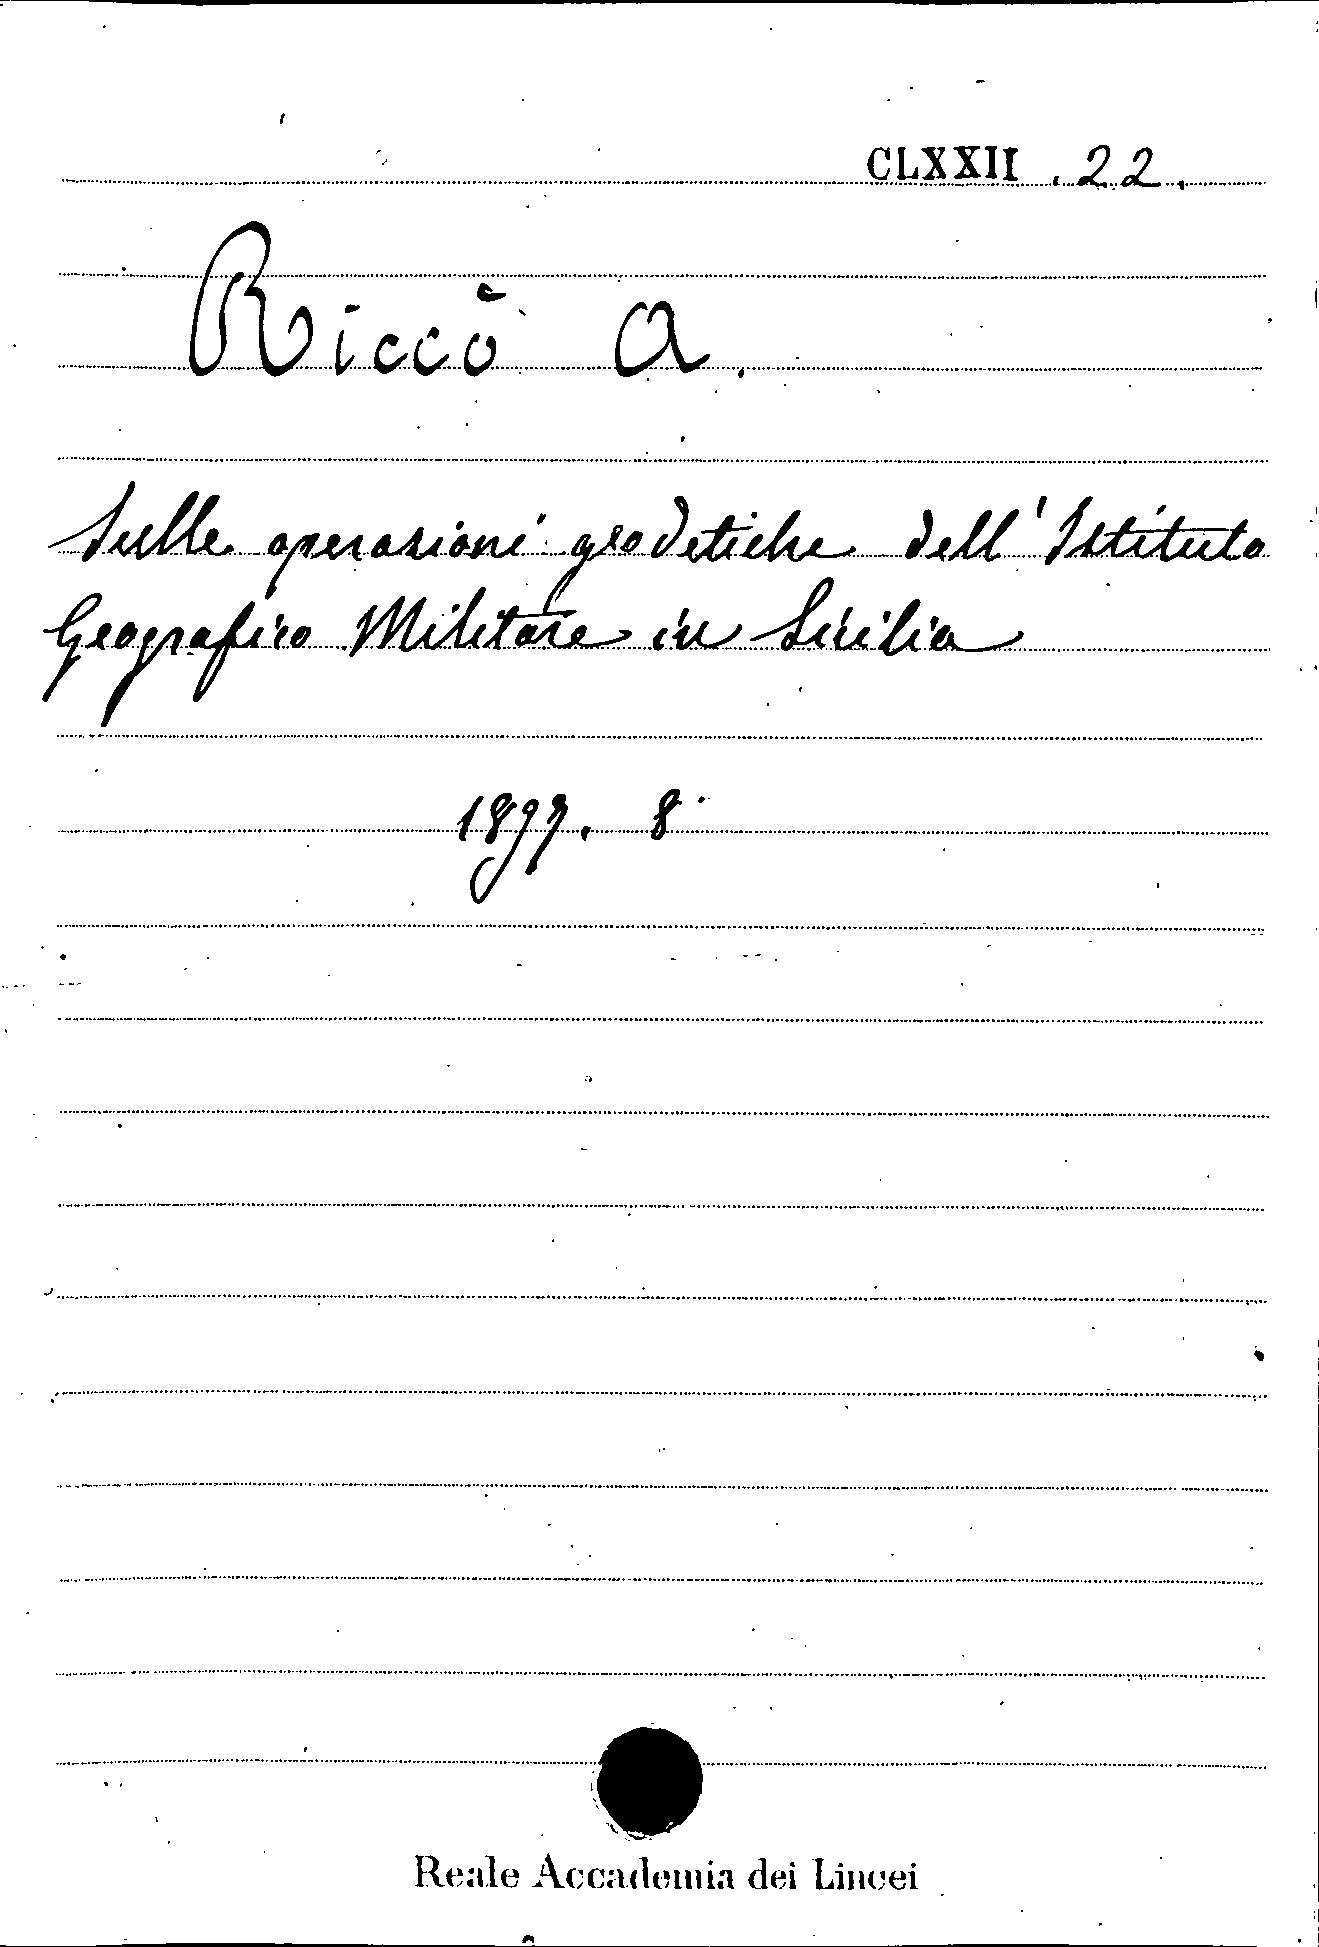 CLXXII . 22.
Riccò A.
Sulle operazioni geodetiche dell'Istituto
Geografico Militare in Sicilia
1897. 8°
Reale Accademia dei Lincei